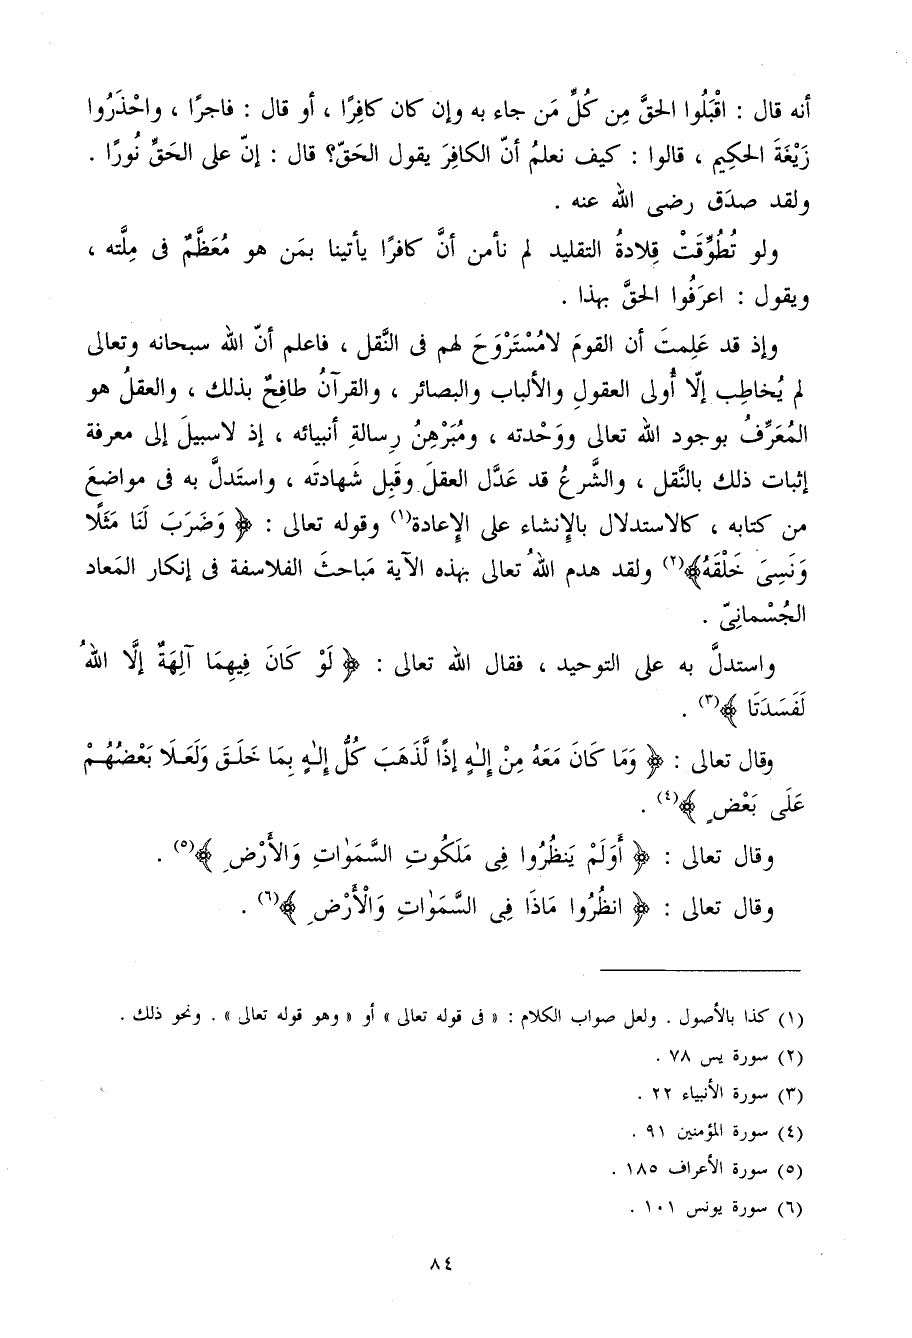 أنه قال : اقْبَلُوا الحقَّ مِن كُلِّ مَن جاء به وإن كان كافِرًا ، أو قال : فاجرًا ، واحْذَرُوا
زَيْغَةَ الحكِيم ، قالوا : كيف نعلمُ أنّ الكافِرَ يقول الحَقّ؟ قال : إنّ على الحَقِّ نُورًا .
ولقد صدَق رضى الله عنه .
ولو تُطُوِّقَتْ قِلادةُ التقليد لم نأمن أنَّ كافرًا يأتينا بمَن هو مُعَظَّمٌ فى مِلَّته ،
ويقول : اعرَفُوا الحقَّ بهذا .
وإذ قد عَلِمتَ أن القومَ لامُسْتَرْوَحَ لهم فى النَّقل ، فاعلم أنّ الله سبحانه وتعالى
لم يُخاطِب إلّا أُولى العقولِ والألباب والبصائر ، والقرآنُ طافِحٌ بذلك ، والعقلُ هو
المُعَرِّفُ بوجود الله تعالى ووَحْدته ، ومُبَرْهِنُ رِسالةِ أنبيائه ، إذ لاسبيلَ إلى معرفة
إثبات ذلك بالنَّقل ، والشَّرعُ قد عَدَّل العقلَ وقَبِل شَهادتَه ، واستدلَّ به فى مواضعَ
من كتابه ، كالاستدلال بالإنشاء على الإعادة(١) وقوله تعالى : ﴿ وَضَرَبَ لَنَا مَثَلًا
وَنَسِىَ خَلْقَهُ﴾(٢) ولقد هدم اللهُ تعالى بهذه الآية مَباحثَ الفلاسفة فى إنكار المَعاد
الجُسْمانِىّ .
واستدلَّ به على التوحيد ، فقال الله تعالى : ﴿ لَوْ كَانَ فِيهِمَا آلِهَةٌ إلَّا اللهُ
لَفَسَدَتَا ﴾(٣) .
وقال تعالى : ﴿ وَمَا كَانَ مَعَهُ مِنْ إلٰهٍ إذًا لَّذَهَبَ كُلُّ إلٰهٍ بِمَا خَلَقَ وَلَعَلَا بَعْضُهُمْ
عَلَى بَعْضٍ ﴾(٤) .
وقال تعالى : ﴿ أَوَلَمْ يَنظُرُوا فِى مَلَكُوتِ السَّمَوٰاتِ وَالأَرْضِ ﴾(٥) .
وقال تعالى : ﴿ انظُرُوا مَاذَا فِى السَّمَوٰاتِ وَالْأَرْضِ ﴾(٦) .
(١) كذا بالأصول . ولعل صواب الكلام : « فى قوله تعالى » أو « وهو قوله تعالى » . ونحو ذلك .
(٢) سورة يس ٧٨ .
(٣) سورة الأنبياء ٢٢ .
(٤) سورة المؤمنين ٩١ .
(٥) سورة الأعراف ١٨٥ .
(٦) سورة يونس ١٠١ .
٨٤